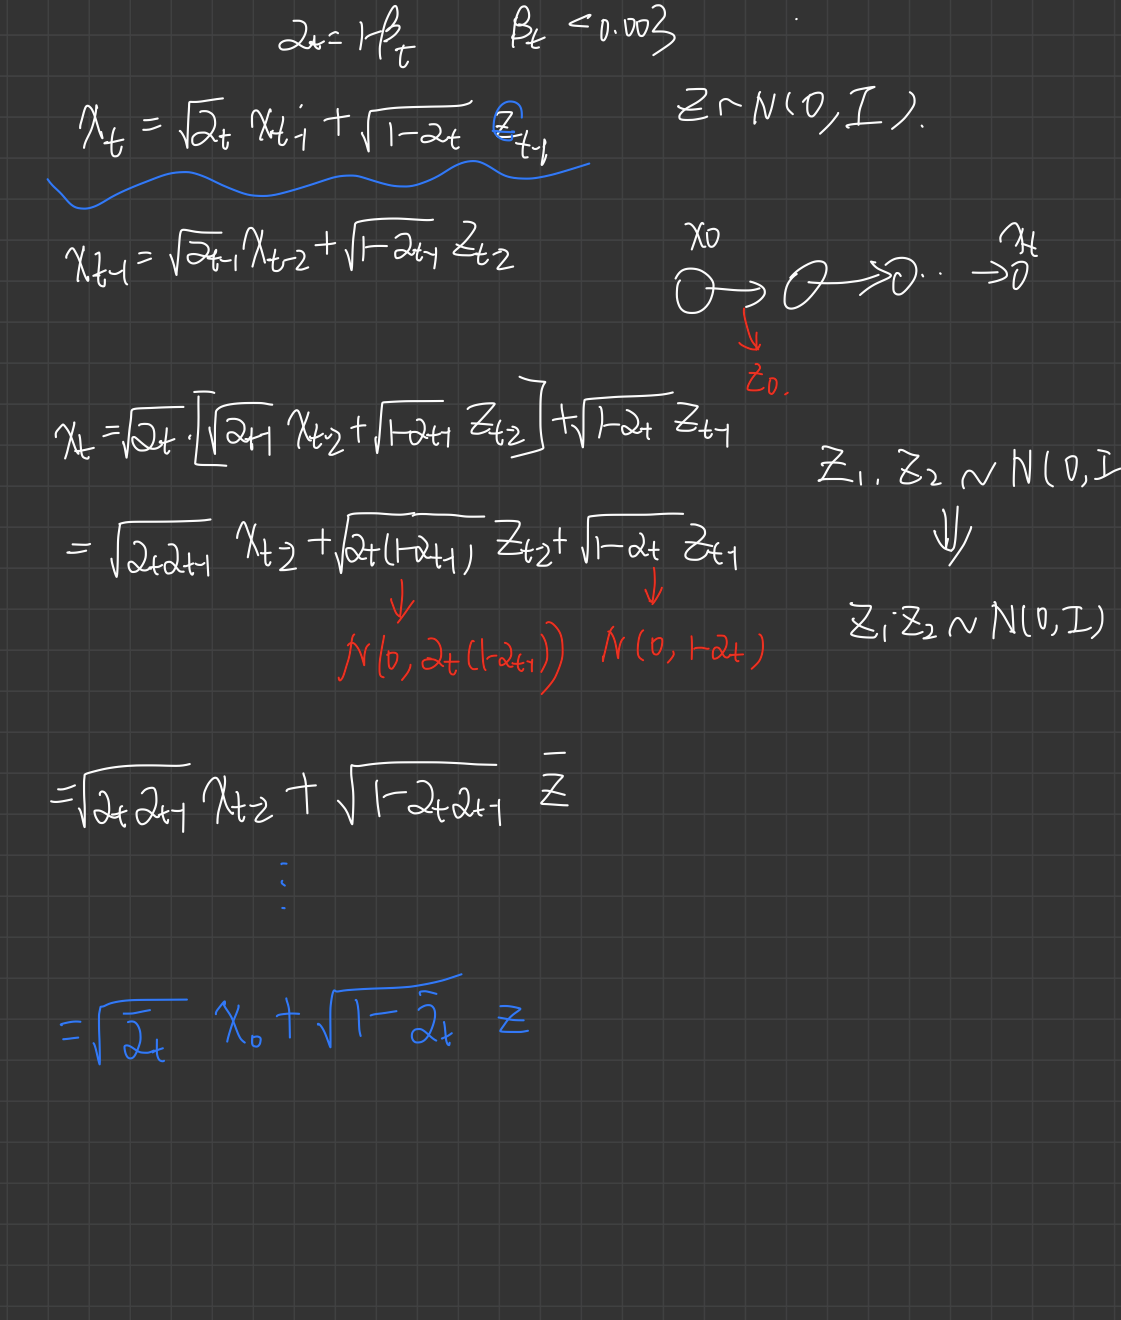 αt = 1-βt βt < 0.003
xt = √αt xt-1 + √1-αt zt-1
z ~ N(0, I).
xt-1 = √αt-1 xt-2 + √1-αt-1 zt-2
x0 → → ·· → xt
z0.
xt = √αt · [√αt-1 xt-2 + √1-αt-1 zt-2] + √1-αt zt-1
z1, z2 ~ N(0, I
= √αtαt-1 xt-2 + √αt(1-αt-1) zt-2 + √1-αt zt-1
⇓
N(0, αt(1-αt-1)) N(0, 1-αt)
z1·z2 ~ N(0, I)
= √αtαt-1 xt-2 + √1-αtαt-1 z̄
⋮
= √ᾱt x0 + √1-ᾱt z